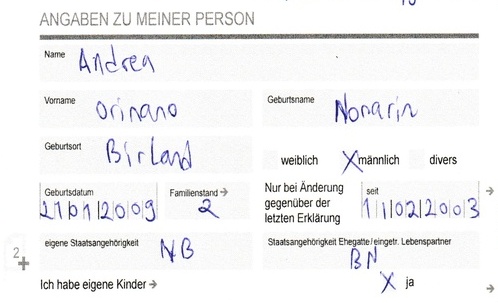 ANGABEN ZU MEINER PERSON
Name Andrea
Vorname Orinano Geburtsname Nonarin
Geburtsort Birland weiblich X männlich divers
Geburtsdatum Familienstand → Nur bei Änderung seit →
21012009 2 gegenüber der 11022003
letzten Erklärung
eigene Staatsangehörigkeit NB Staatsangehörigkeit Ehegatte/eingetr. Lebenspartner
2 BN
Ich habe eigene Kinder → X ja →